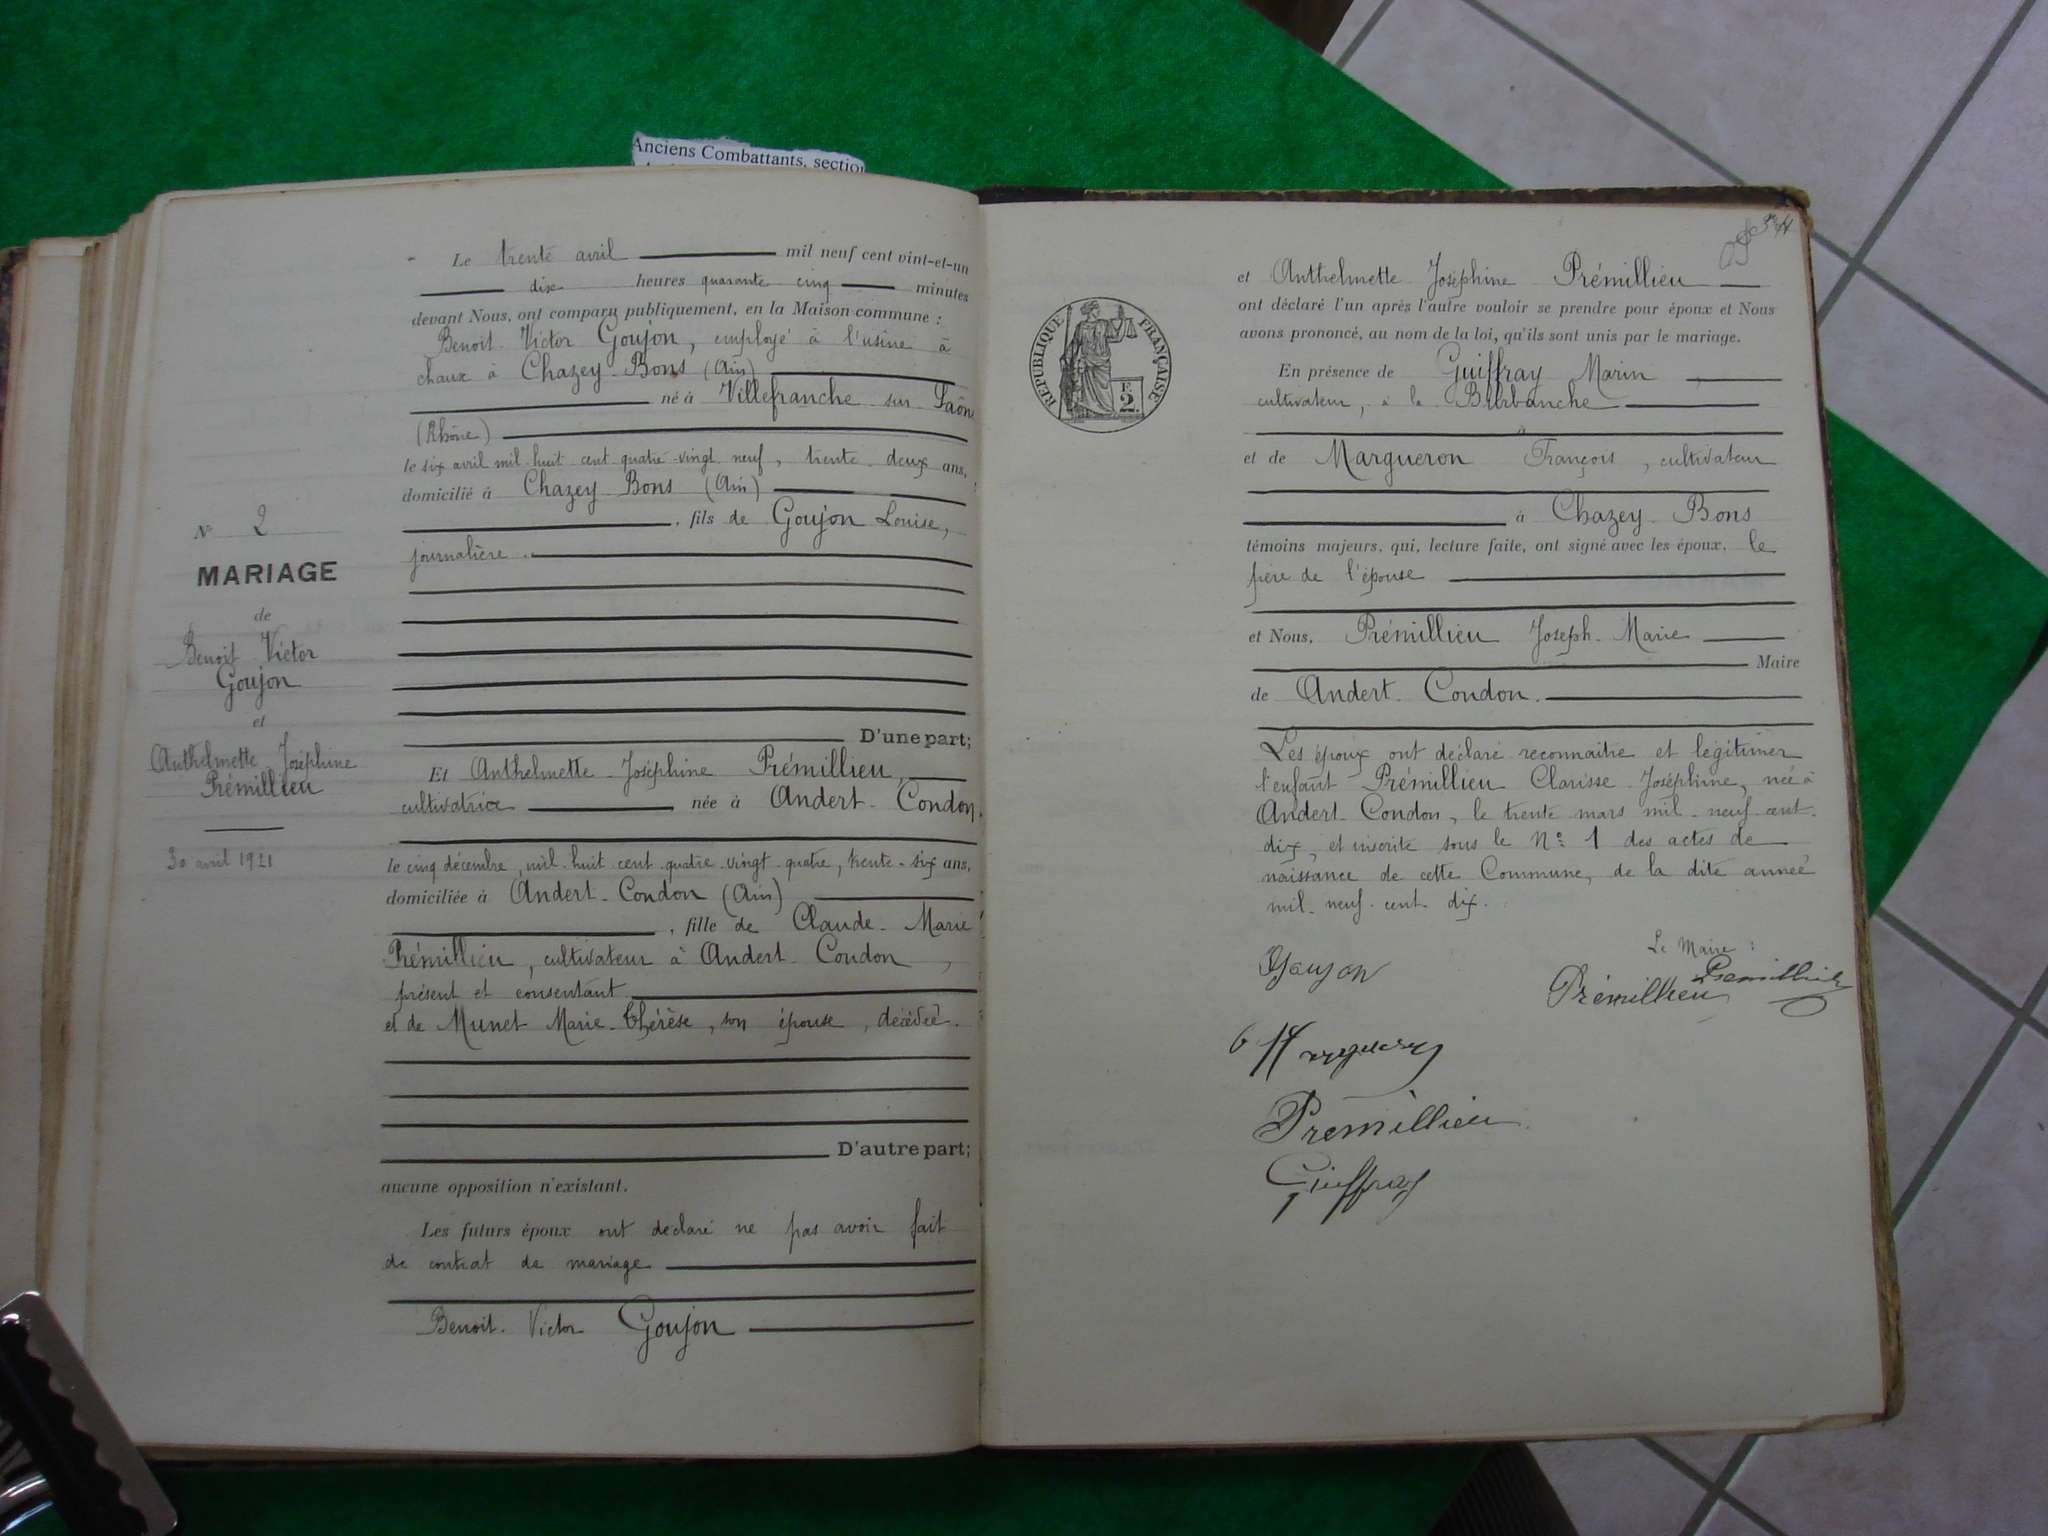 Anciens Combattants, section
Le trente avril mil neuf cent vint-et-un
dix heures quarante cinq minutes
devant Nous, ont comparu publiquement, en la Maison commune :
Benoit Victor Goujon, employé à l'usine à
chaux à Chazey-Bons (Ain)
né à Villefranche sur Saône
(Rhône)
le six avril mil huit cent quatre-vingt neuf, trente-deux ans,
domicilié à Chazey Bons (Ain)
, fils de Goujon Louise,
journalière.
D'une part;
N° 2
MARIAGE
de
Benoit Victor
Goujon
et
Anthelmette Joséphine
Prémillieu
30 avril 1921
Et Anthelmette Joséphine Prémillieu,
cultivatrice née à Andert-Condon,
le cinq décembre, mil huit cent quatre-vingt-quatre, trente-six ans,
domiciliée à Andert-Condon (Ain)
, fille de Claude-Marie
Prémillieu, cultivateur à Andert-Condon,
présent et consentant
et de Munet Marie-Thérèse, son épouse, décédée.
D'autre part;
aucune opposition n'existant.
Les futurs époux ont déclaré ne pas avoir fait
de contrat de mariage
Benoit-Victor Goujon
et Anthelmette Joséphine Prémillieu
ont déclaré l'un après l'autre vouloir se prendre pour époux et Nous
avons prononcé, au nom de la loi, qu'ils sont unis par le mariage.
REPUBLIQUE FRANÇAISE
F.
2.
En présence de Guiffray Marin,
cultivateur, à la Burbanche
à
et de Margueron François, cultivateur
à Chazey-Bons
témoins majeurs, qui, lecture faite, ont signé avec les époux, le
père de l'épouse
et Nous, Prémillieu Joseph-Marie
Maire
de Andert-Condon.
Les époux ont déclaré reconnaitre et légitimer
l'enfant Prémillieu Clarisse Joséphine, née à
Andert-Condon, le trente mars mil-neuf-cent-
dix, et inscrite sous le N° 1 des actes de
naissance de cette Commune, de la dite année
mil-neuf-cent-dix.
Le Maire :
Goujon
Prémillieu Premillieu
Margueron
Premillieu
Guiffray